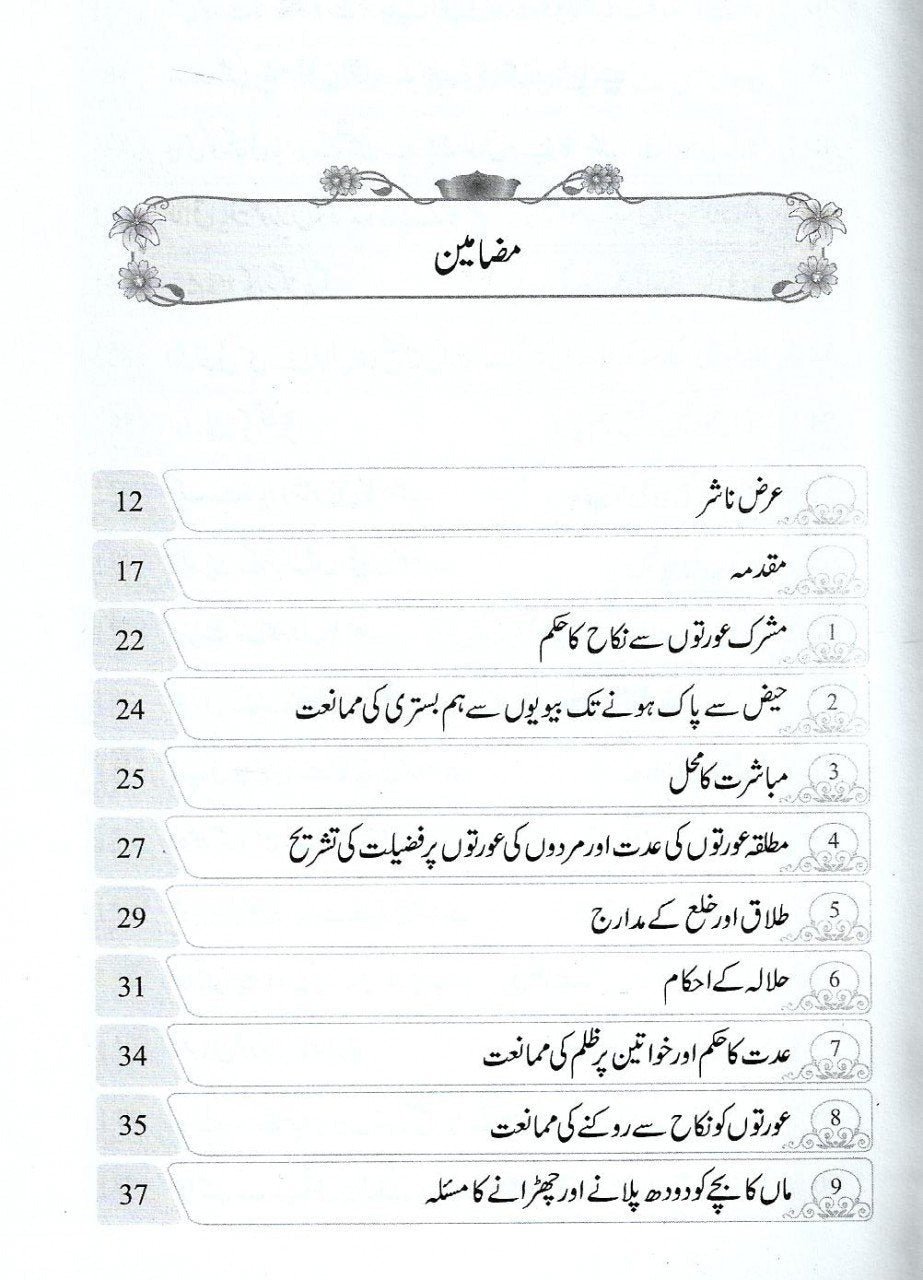 مضامین
عرض ناشر 12
مقدمہ 17
1 مشرک عورتوں سے نکاح کا حکم 22
2 حیض سے پاک ہونے تک بیویوں سے ہم بستری کی ممانعت 24
3 مباشرت کا محل 25
4 مطلقہ عورتوں کی عدت اور مردوں کی عورتوں پر فضیلت کی تشریح 27
5 طلاق اور خلع کے مدارج 29
6 حلالہ کے احکام 31
7 عدت کا حکم اور خواتین پر ظلم کی ممانعت 34
8 عورتوں کو نکاح سے روکنے کی ممانعت 35
9 ماں کا بچے کو دودھ پلانے اور چھڑانے کا مسئلہ 37